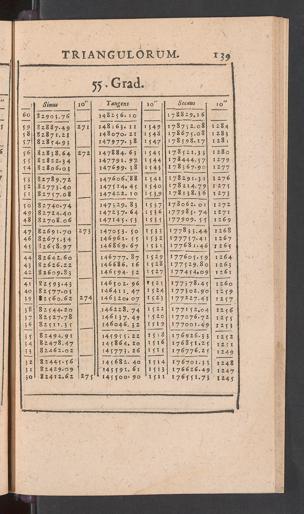 TRIANGULORUM. 139
55. Grad.
Sinus 10" Tangens 10" Secans 10"
60 82903.76 148256.10 178829.16
59 82887.49 271 148163.11 1549 178752.08 1284
58 82871.21 148070.21 1548 178675.08 1283
57 82854.93 147977.38 1547 178598.17 1281
56 82838.64 272 147884.63 1545 178521.33 1280
55 82822.34 147791.97 1544 178444.57 1279
54 82806.03 147699.38 1543 178367.90 1277
53 82789.72 147606.88 1541 178291.31 1276
52 82773.40 147514.45 1540 178214.79 1275
51 82757.08 147422.10 1539 178138.36 1273
50 82740.74 147329.83 1537 178062.01 1272
49 82724.40 147237.64 1536 177985.74 1271
48 82708.06 147145.53 1535 177909.55 1269
47 82691.70 273 147053.50 1533 177833.44 1268
46 82675.34 146961.55 1532 177757.41 1267
45 82658.97 146869.67 1531 177681.46 1265
44 82642.60 146777.87 1529 177605.59 1264
43 82626.22 146686.16 1528 177529.80 1263
42 82609.83 146594.52 1527 177454.09 1261
41 82593.43 146502.96 1525 177378.45 1260
40 82577.03 146411.47 1524 177302.90 1259
39 82560.62 274 146320.07 1523 177227.43 1257
38 82544.20 146228.74 1522 177152.04 1256
37 82527.78 146137.49 1520 177076.72 1255
36 82511.35 146046.32 1519 177001.49 1253
35 82494.91 145955.22 1518 176926.33 1252
34 82478.47 145864.20 1516 176851.25 1251
33 82462.02 145773.26 1515 176776.25 1249
32 82445.56 145682.40 1514 176701.33 1248
31 82429.09 145591.61 1513 176626.49 1247
30 82412.62 275 145500.91 1511 176551.73 1245